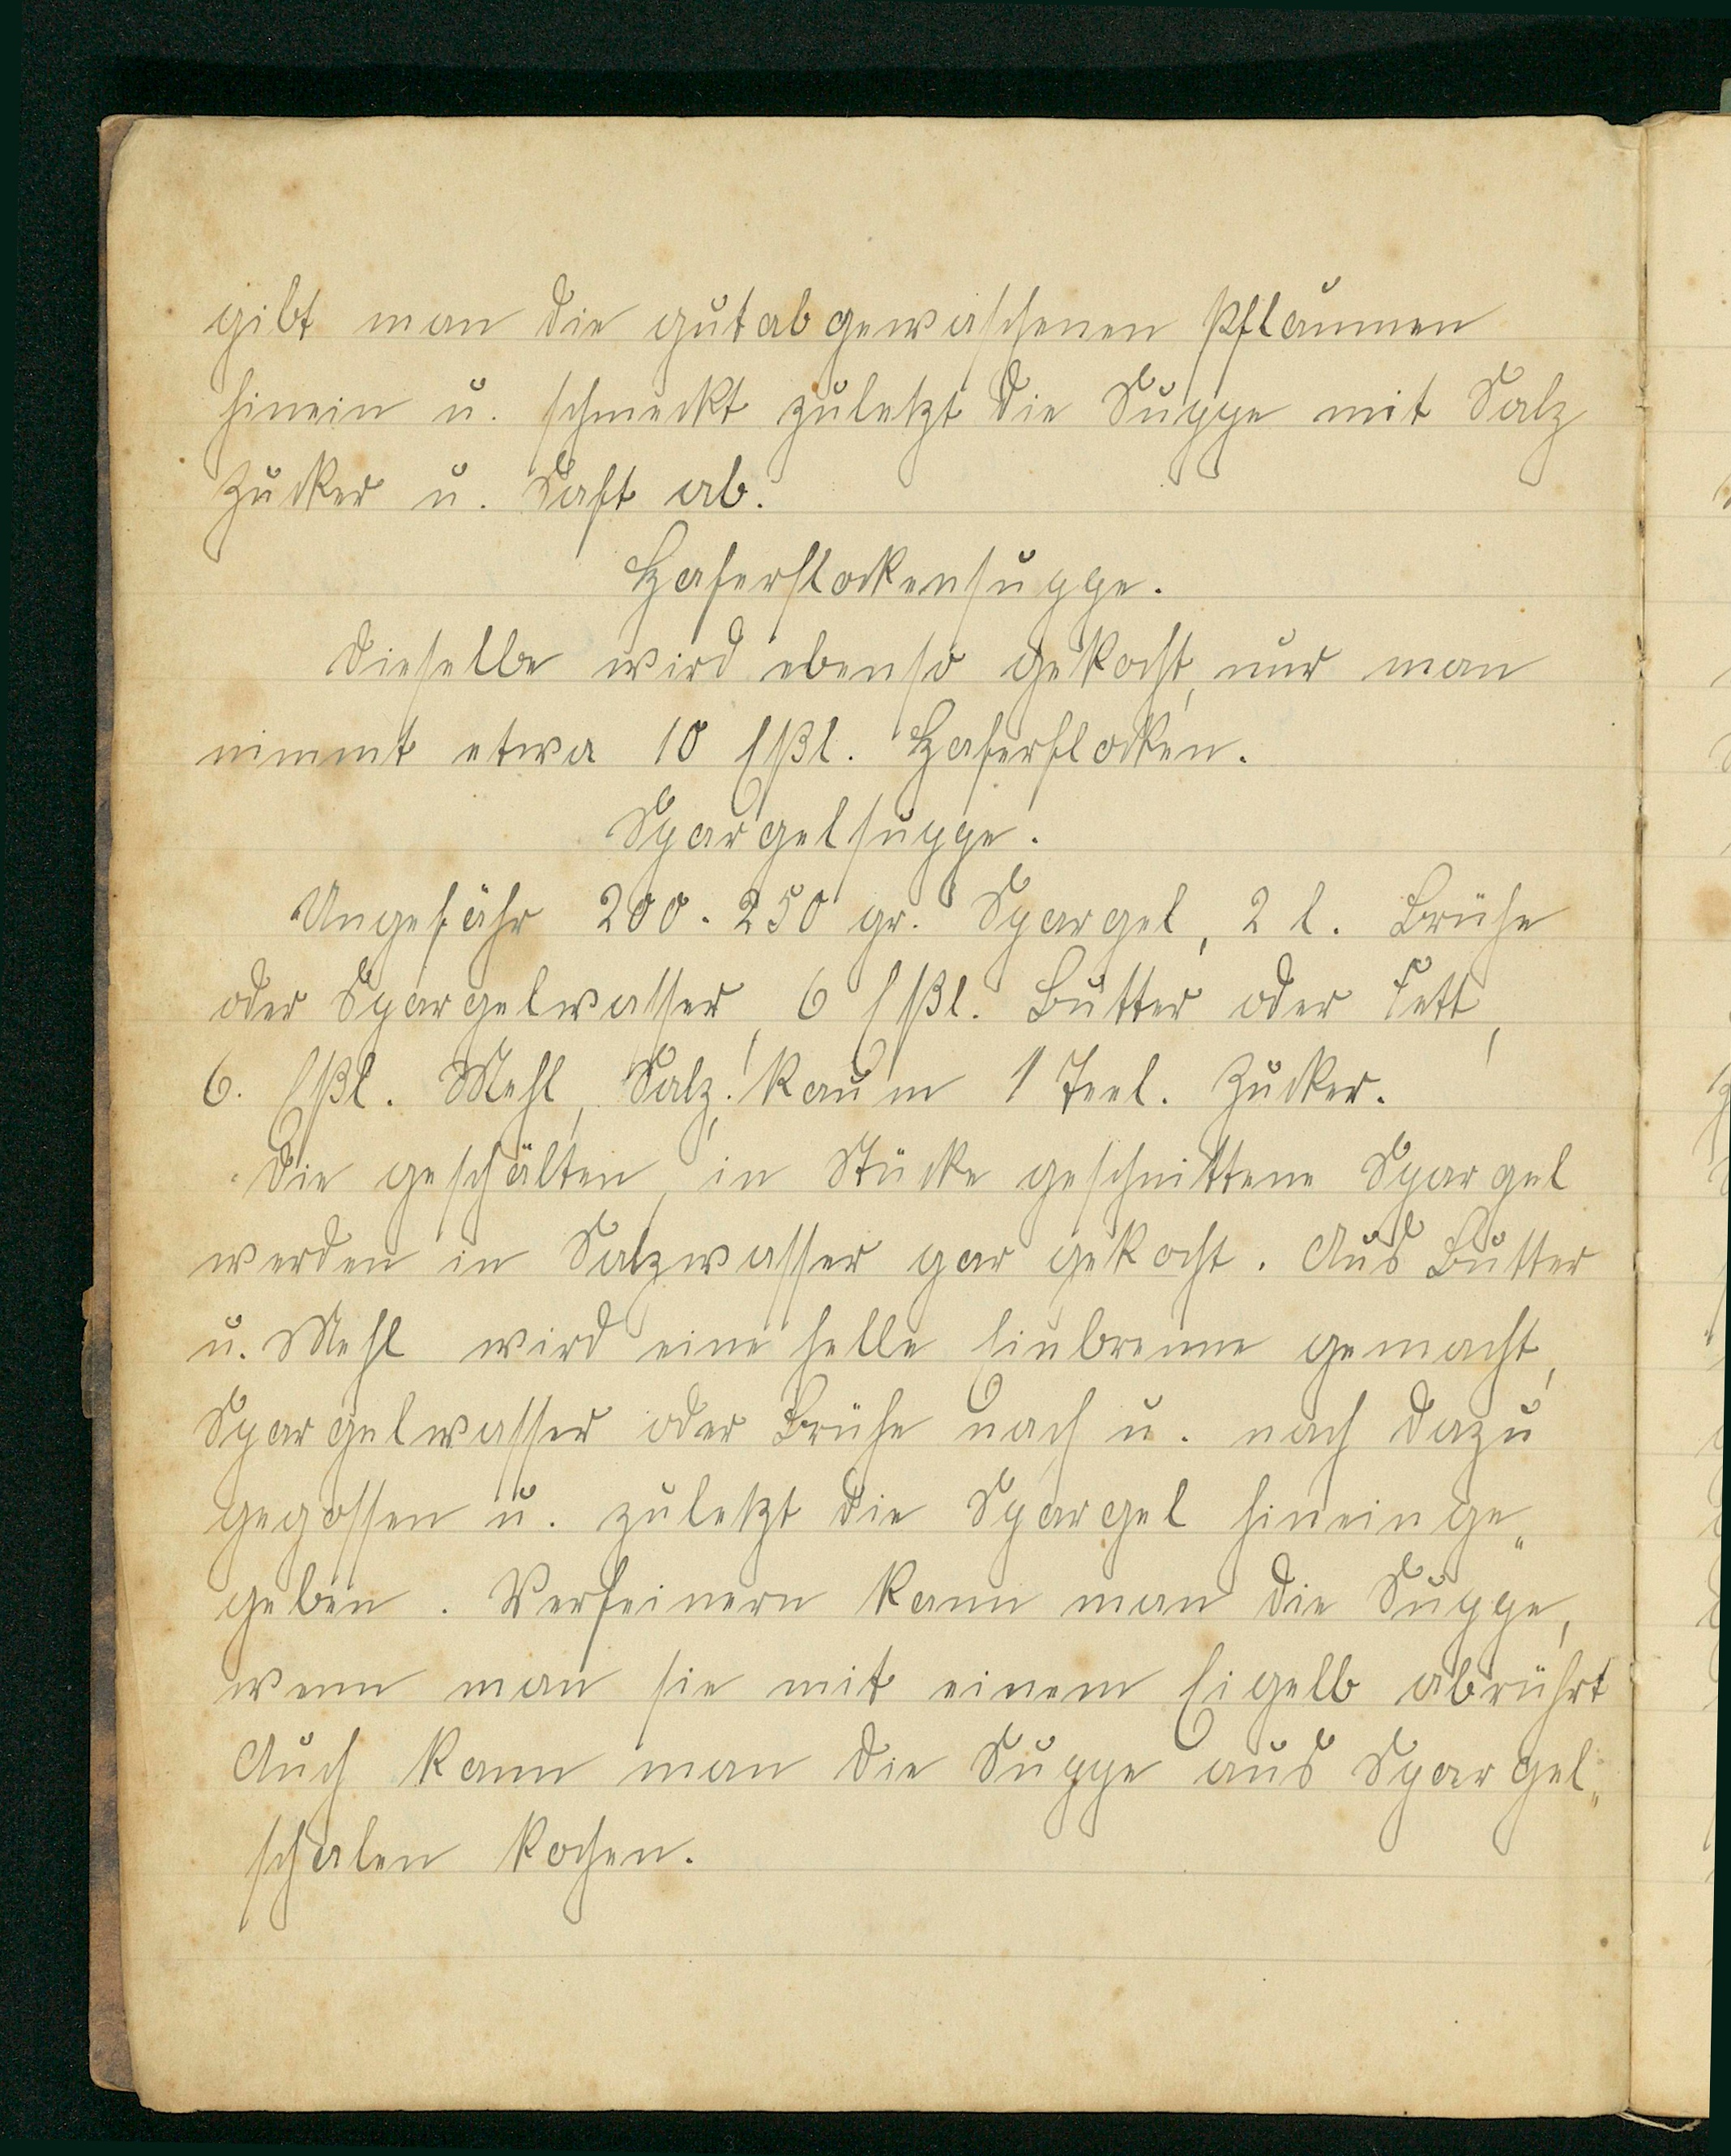 gibt man die gutabgewaschenen Pflaumen
hinein u. schmeckt zuletzt die Suppe mit Salz
Zucker u. Saft ab.
Haferflockensuppe.
Dieselbe wird ebenso gekocht, nur man
nimmt etwa 10 Eßl. Haferflocken.
Spargelsuppe.
Ungefähr 200-250 gr. Spargel, 2 l. Brühe
oder Spargelwasser, 6 Eßl. Butter oder Fett,
6. Eßl. Mehl, Salz, kaum 1 Teel. Zucker.
Die geschälten, in Stücke geschnittene Spargel
werden in Salzwasser gar gekocht. Aus Butter
u. Mehl wird eine helle Einbrenne gemacht,
Spargelwasser oder Brühe nach u. nach dazu
gegossen u. zuletzt die Spargel hineinge„
geben. Verfeinern kann man die Suppe,
wenn man sie mit einem Eigelb abrührt
Auch kann man die Suppe aus Spargel„
schalen kochen.